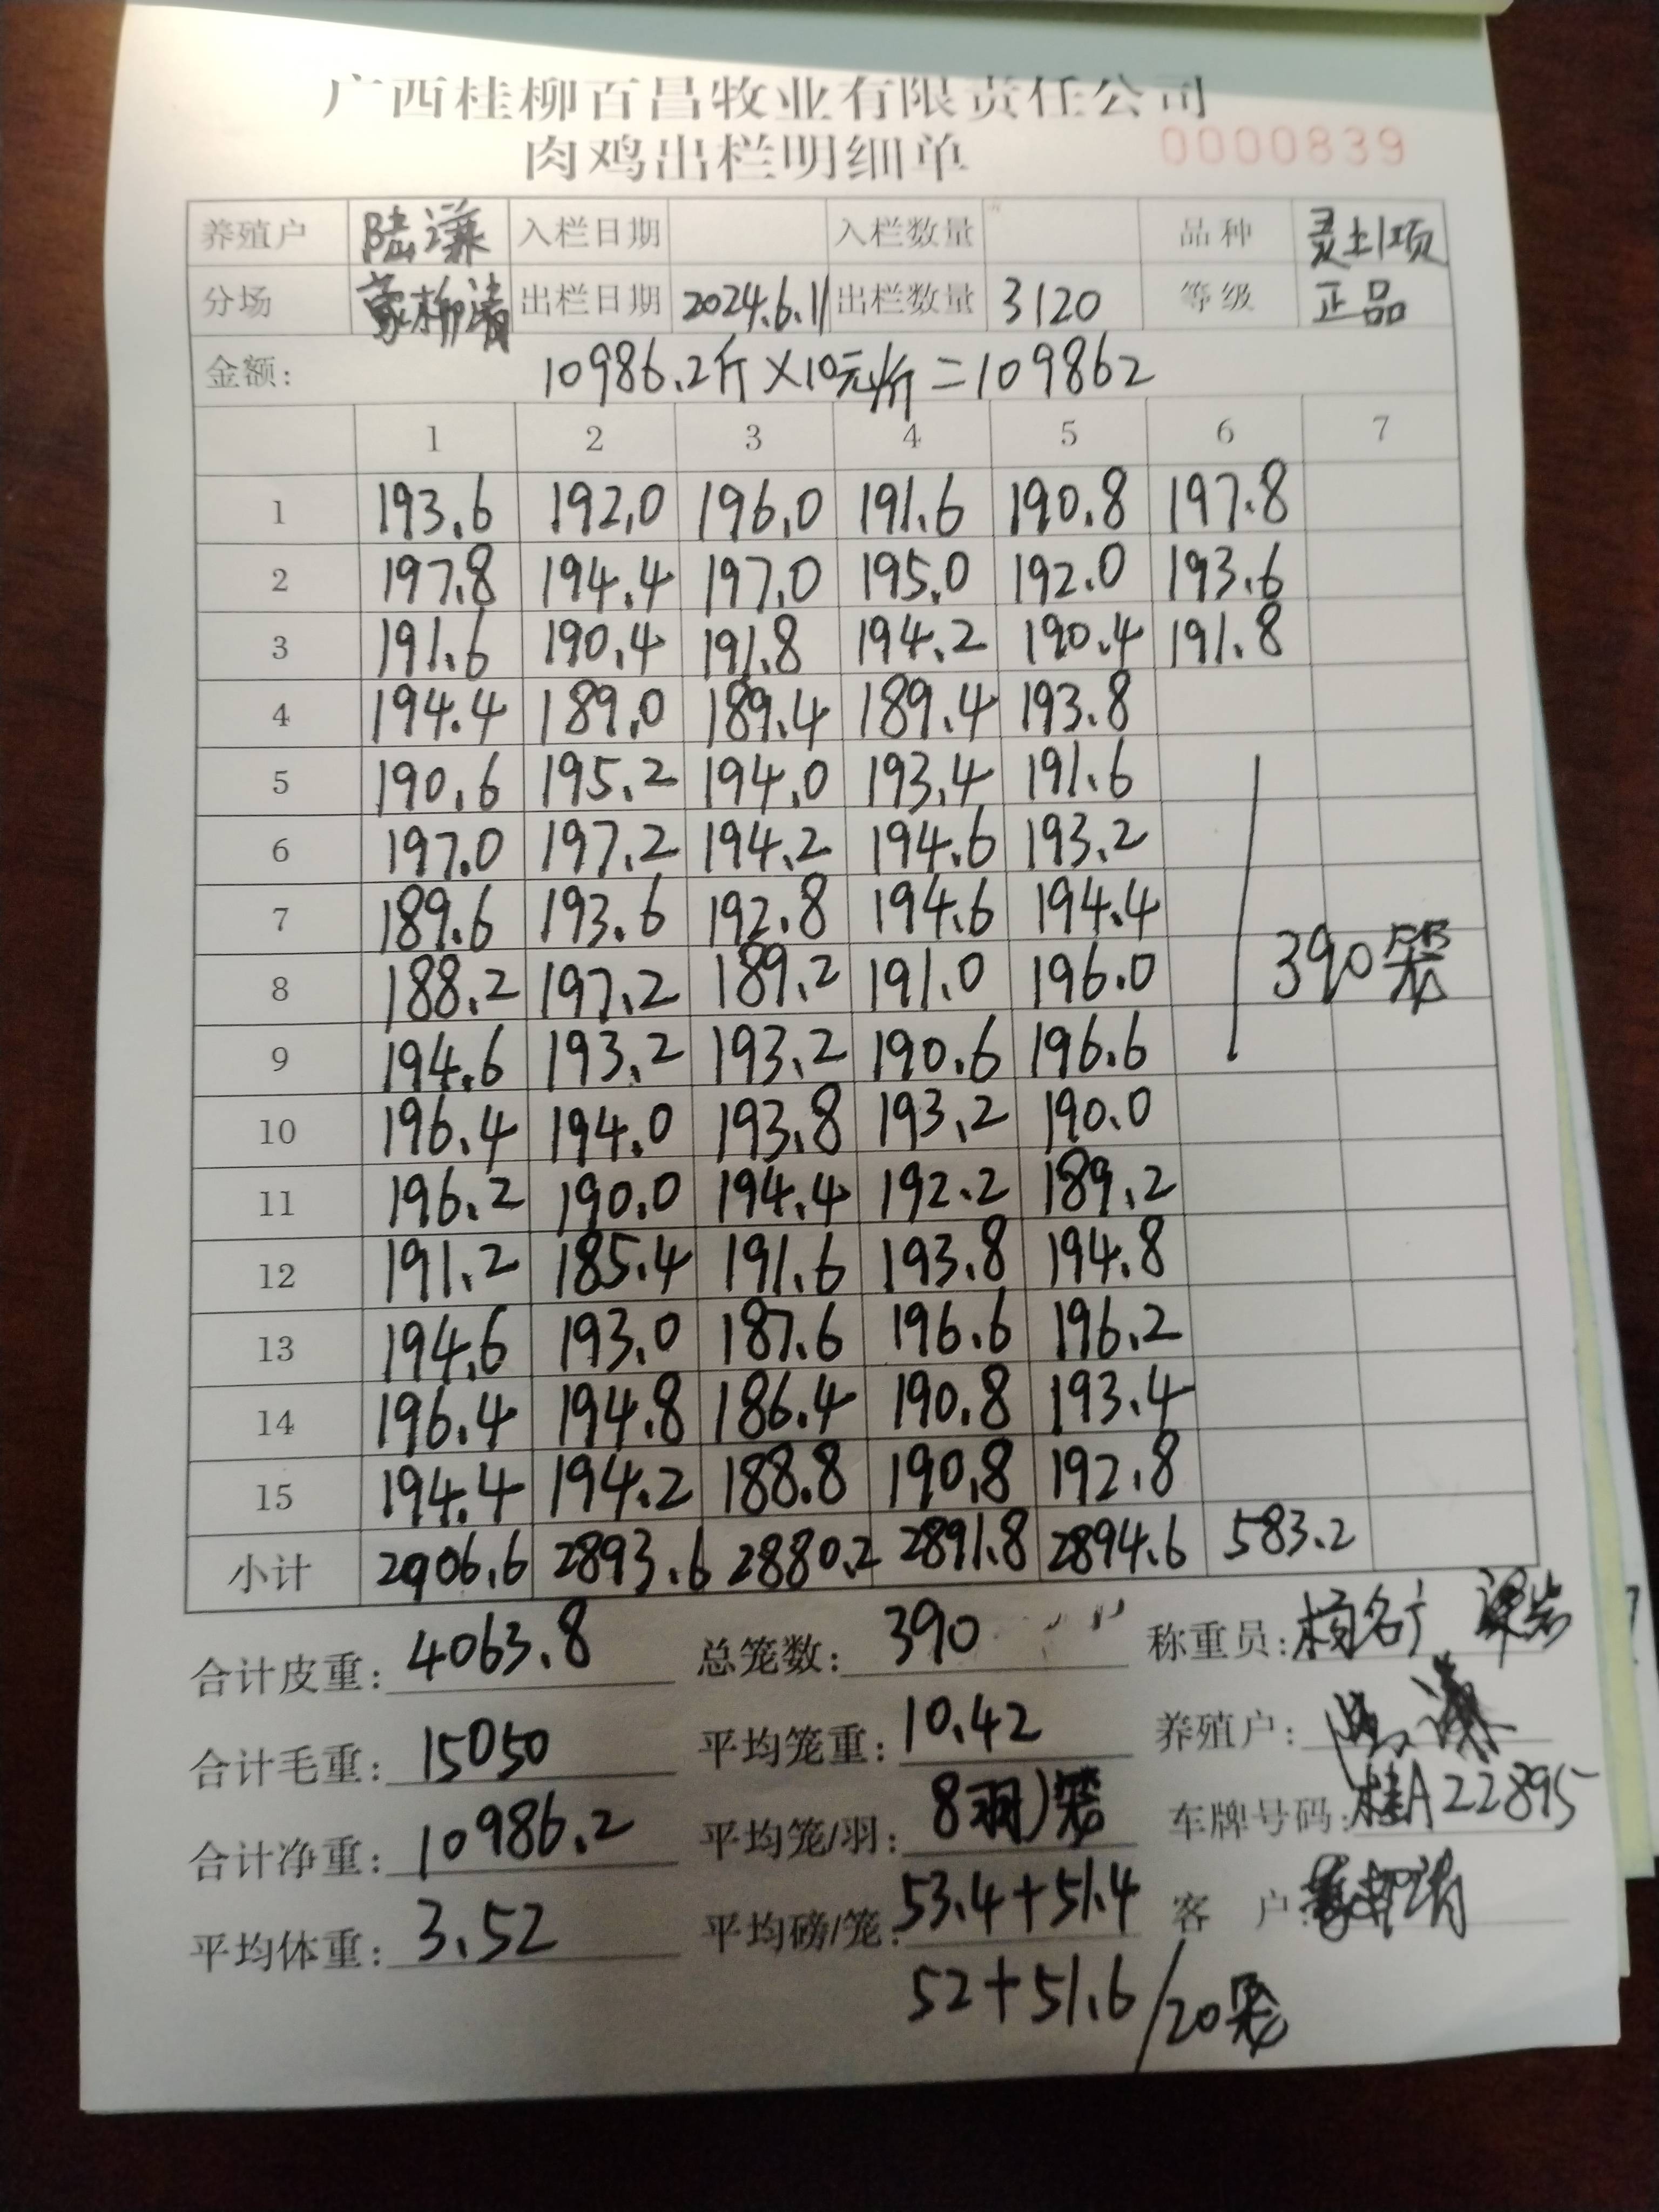 广西桂柳百昌牧业有限责任公司
肉鸡出栏明细单 0000839
养殖户 陆谦 入栏日期 入栏数量 品种 灵土1项
分场 蒙柳清 出栏日期 2024.6.11 出栏数量 3120 等级 正品
金额: 10986.2斤×10元/斤=109862
1 2 3 4 5 6 7
1 193.6 192.0 196.0 191.6 190.8 197.8
2 197.8 194.4 197.0 195.0 192.0 193.6
3 191.6 190.4 191.8 194.2 190.4 191.8
4 194.4 189.0 189.4 189.4 193.8
5 190.6 195.2 194.0 193.4 191.6
6 197.0 197.2 194.2 194.6 193.2
7 189.6 193.6 192.8 194.6 194.4
8 188.2 197.2 189.2 191.0 196.0 390笼
9 194.6 193.2 193.2 190.6 196.6
10 196.4 194.0 193.8 193.2 190.0
11 196.2 190.0 194.4 192.2 189.2
12 191.2 185.4 191.6 193.8 194.8
13 194.6 193.0 187.6 196.6 196.2
14 196.4 194.8 186.4 190.8 193.4
15 194.4 194.2 188.8 190.8 192.8
小计 2906.6 2893.6 2880.2 2891.8 2894.6 583.2
合计皮重: 4063.8 总笼数: 390 称重员: 杨名广
合计毛重: 15050 平均笼重: 10.42 养殖户: 陆谦
合计净重: 10986.2 平均笼/羽: 8羽/笼 车牌号码: 桂A22895
平均体重: 3.52 平均磅/笼: 53.4+51.4 客 户: 蒙柳清
52+51.6/20笼